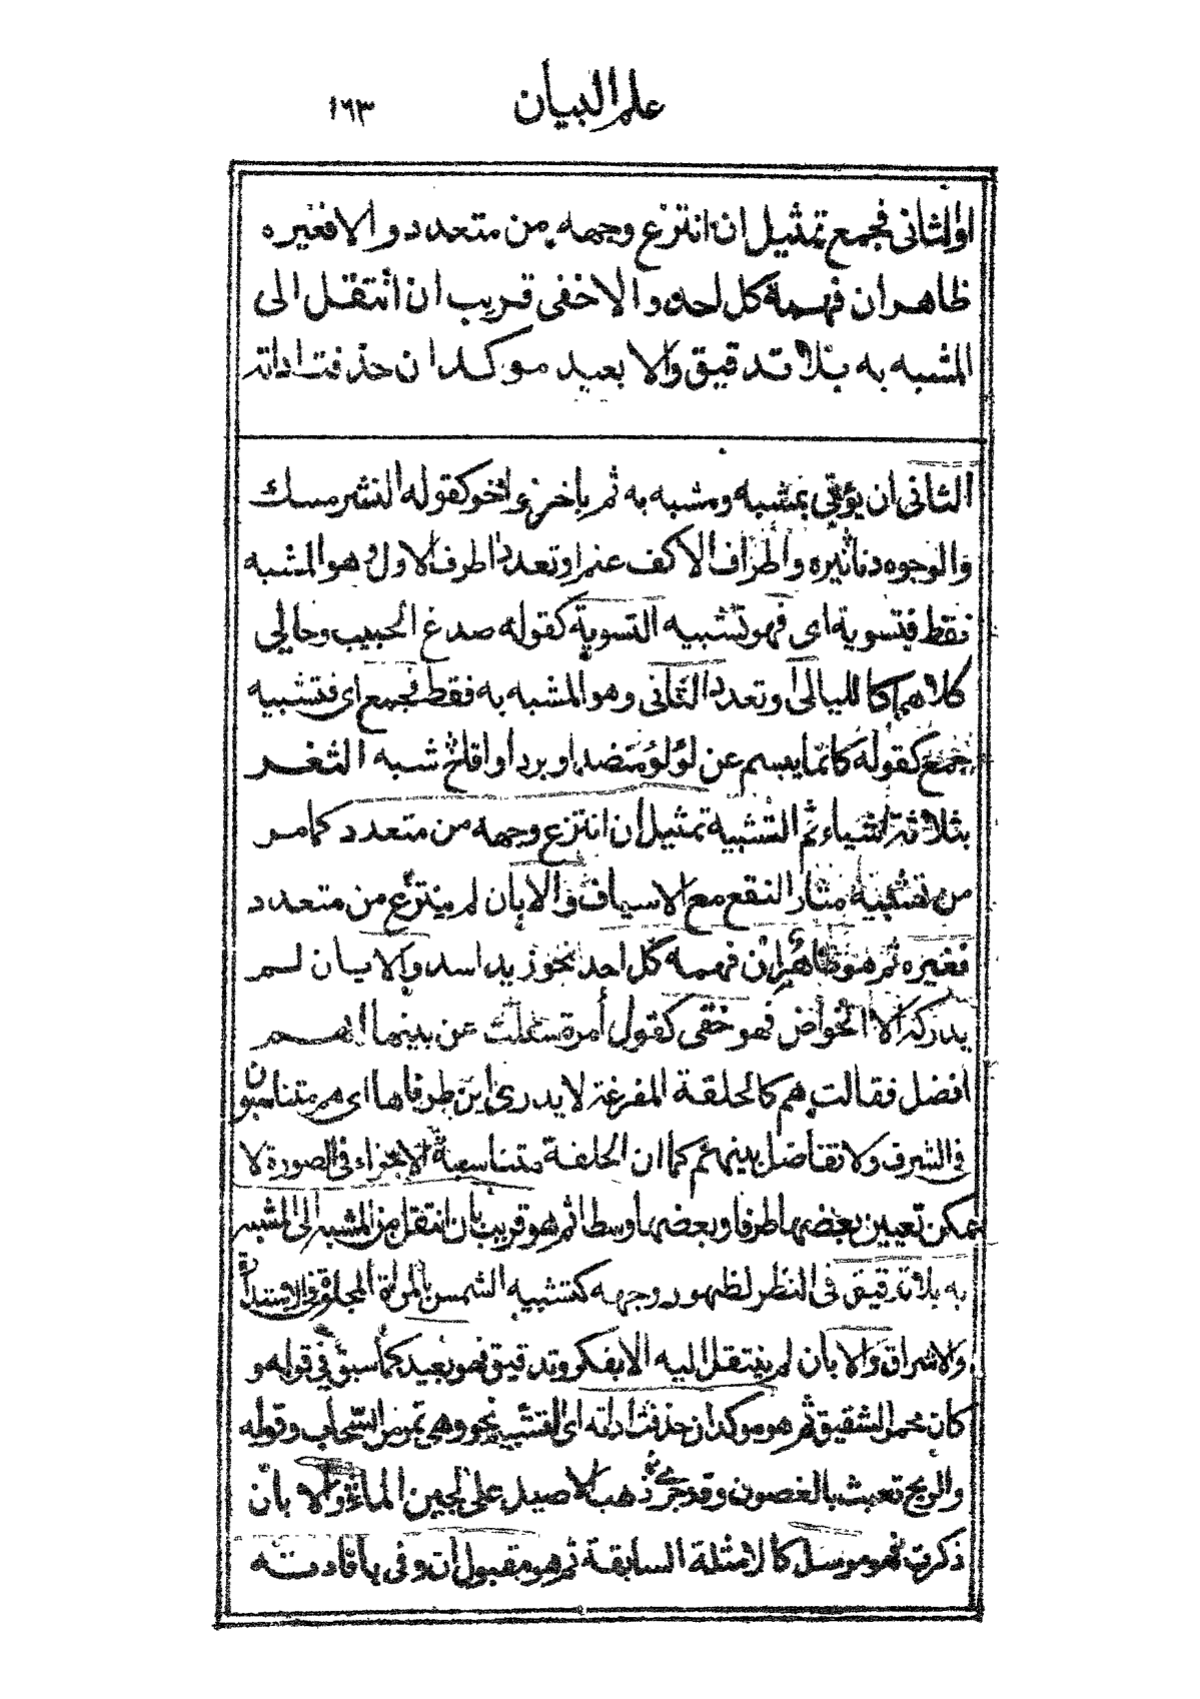 علم البيان ١٦٣
او الثانى فجمع تمثيل ان انتزع وجهه من متعدد والا فغيره
ظاهر ان فهمه كل احد والا خفى قريب ان انتقل الى
المشبه به بلا تدقيق والا بعيد موكد ان حذفت اداته
الثانى ان يؤتى بمشبه ومشبه به ثم باخر واخر كقوله النشر مسك
والوجوه دنانير واطراف الاكف عنم او تعدد طرف الاول وهو المشبه
فقط فتسوية اى فهو تشبيه التسوية كقوله صدغ الحبيب وحالى
كلاهما كالليالى او تعدد الثانى وهو المشبه به فقط فجمع اى فتشبيه
جمع كقوله كانما يبسم عن لؤلؤ منضد او برد او اقاح شبه الثغر
بثلاثة اشياء ثم التشبيه تمثيل ان انتزع وجهه من متعدد كما مر
من تشبيه مثار النقع مع الاسياف والا بان لم ينتزع من متعدد
فغيره ثم هو ظاهر ان فهمه كل احد نحو زيد اسد والا بان لم
يدركه الا الخواص فهو خفى كقول امرة سئلت عن بنيها ايهم
افضل فقالت هم كالحلقة المفرغة لا يدرى اين طرفاها اى هم متناسبون
فى الشرف ولا تفاضل بينهم كما ان الحلقة متناسبة الاجزاء فى الصورة لا
يمكن تعيين بعضها طرفا وبعضها وسطا ثم هو قريب بان انتقل من المشبه الى المشبه
به بلا تدقيق فى النظر لظهور وجهه كتشبيه الشمس بالمراة المجلوة فى الاستدارة
والاشراق والا بان لم ينتقل اليه الا بفكر وتدقيق فهو بعيد كما سبق فى قوله و
كان محمر الشقيق ثم هو موكد ان حذفت اداته اى التشبيه نحو وهى تمر مر السحاب وقوله
والريح تعبث بالغصون وقد جرى ذهب الاصيل على لجين الماء والا بان
ذكرت فهو مرسل كالامثلة السابقة ثم هو مقبول ان وفى بافادته